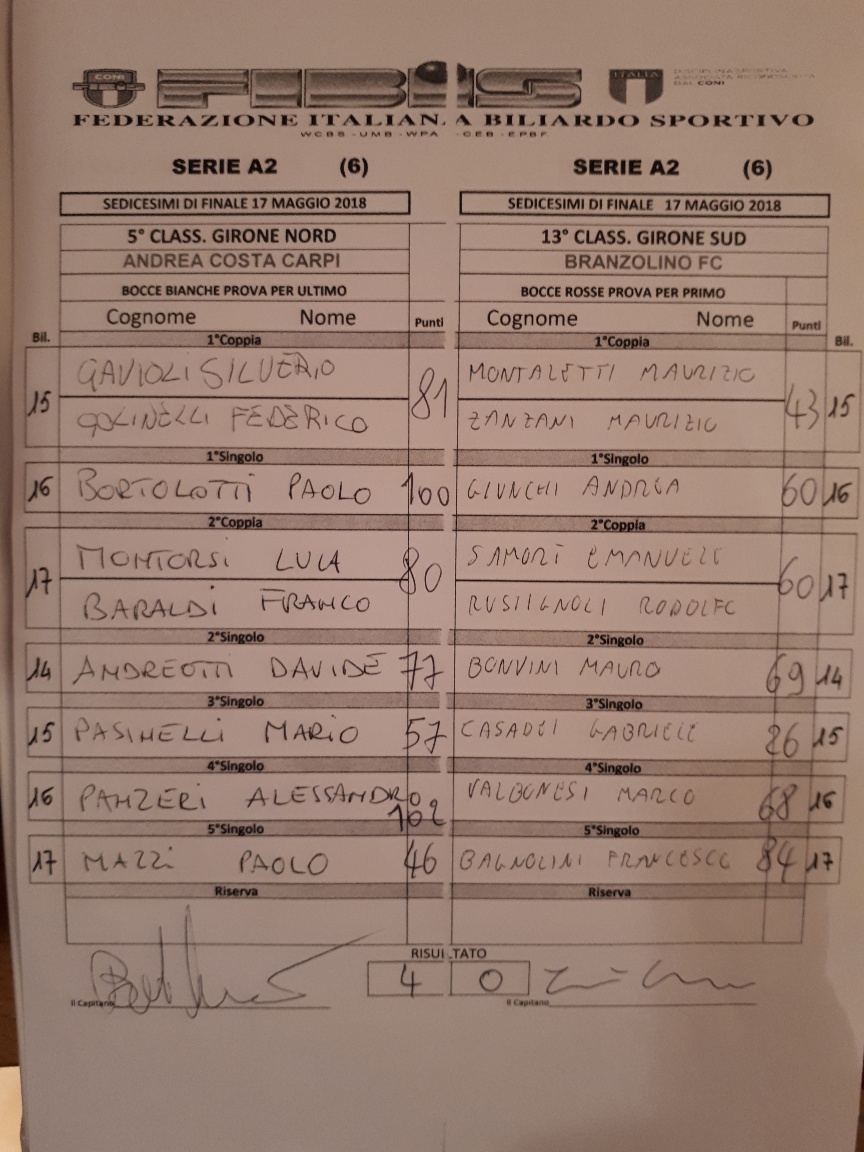 CONI FIBIS ITALIA DISCIPLINA SPORTIVA
ASSOCIATA RICONOSCIUTA
DAL CONI
FEDERAZIONE ITALIANA BILIARDO SPORTIVO
WCBS - UMB - WPA - CEB - EPBF
SERIE A2 (6) SERIE A2 (6)
SEDICESIMI DI FINALE 17 MAGGIO 2018 SEDICESIMI DI FINALE 17 MAGGIO 2018
5° CLASS. GIRONE NORD 13° CLASS. GIRONE SUD
ANDREA COSTA CARPI BRANZOLINO FC
BOCCE BIANCHE PROVA PER ULTIMO BOCCE ROSSE PROVA PER PRIMO
Cognome Nome Punti Cognome Nome Punti
Bil. 1°Coppia 1°Coppia Bil.
15 GAVIOLI SILVERIO 81 MONTALETTI MAURIZIO 43 15
GOLINELLI FEDERICO ZANZANI MAURIZIO
1°Singolo 1°Singolo
16 BORTOLOTTI PAOLO 100 GIUNCHI ANDREA 60 16
2°Coppia 2°Coppia
17 MONTORSI LUCA 80 SAMORÌ EMANUELE 60 17
BARALDI FRANCO RODOLFO
2°Singolo 2°Singolo
14 ANDREOTTI DAVIDE 77 BONVINI MAURO 69 14
3°Singolo 3°Singolo
15 PASINELLI MARIO 57 CASADEI GABRIELE 26 15
4°Singolo 4°Singolo
16 PANZERI ALESSANDRO 102 VALBONESI MARCO 68 16
5°Singolo 5°Singolo
17 MAZZI PAOLO 46 BAGNOLINI FRANCESCO 84 17
Riserva Riserva
RISULTATO
4 0
Il Capitano Il Capitano